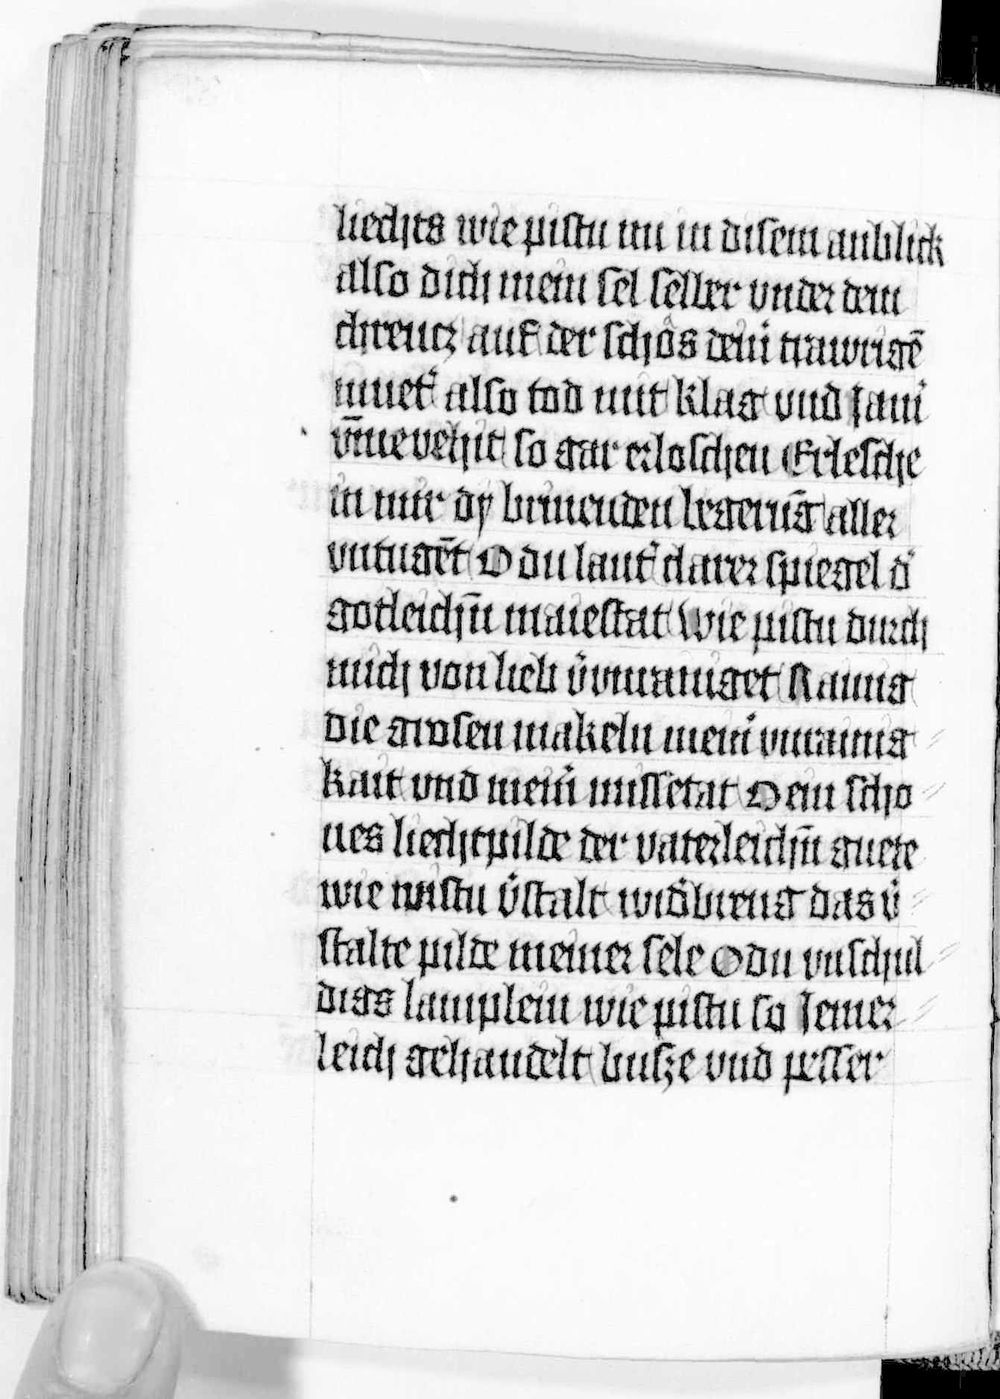 liechts wie pistu nu in disem anblick
also dich mein sel seller vnder dem
chreucz auf der schős dein̉ trawrigē
muet̉ also tod mit klag vnd Jam̉
v̄mevehit so gar erloschen Erlesche
in mir dÿ brinenden begerūg aller
vntugēt O du laut̉ clarer spiegel d̉
gotleichn̄ maiestat wie pistu durch
mich von lieb v̉vnrainiget Rainig
die grosen makeln mein̉ vnrainig
kait vnd mein̉ missetat O ein scho
nes liechtpilde der vaterleichn̄ guete
wie pistu v̉stalt wid̉breng das v̉
stalte pilde meiner sele O du vnschul
digs lamplein wie pistu so Jemer
leich gehandelt busze vnd pesser